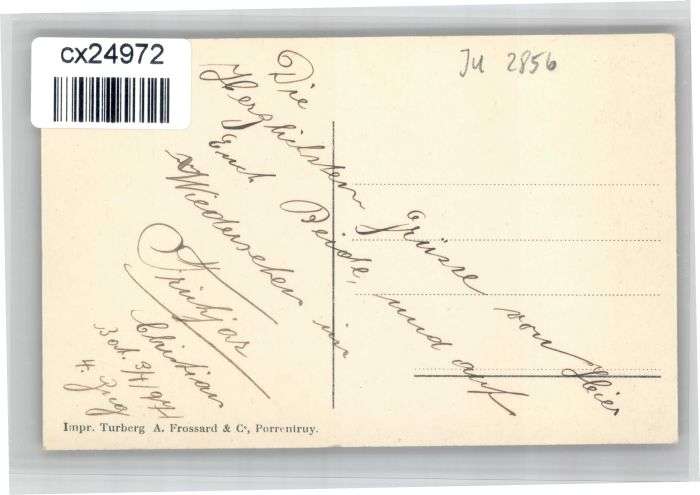 cx24972
Ju 2856
Die
Herzlichsten Grüsse von Hier
Euch Beide, und auf
Wiedersehen in
Christian
Bat. 34/94
4. Zug
Impr. Turberg A. Frossard & Cⁱᵉ, Porrentruy.